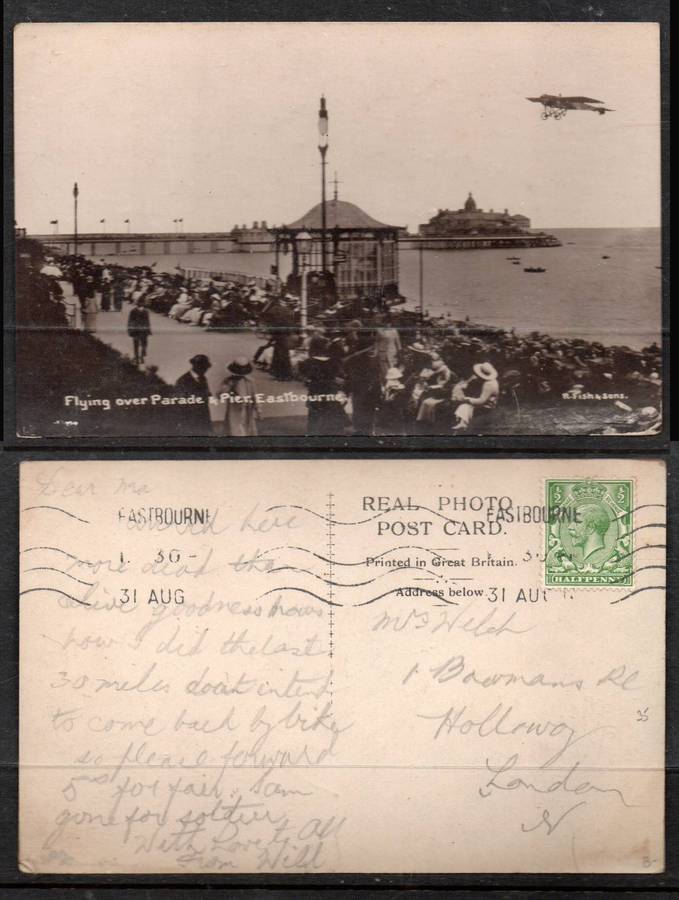 Flying over Parade & Pier. Eastbourne
R. Fish & Sons.
Dear Ma
EASTBOURNE
1 30 -
31 AUG
arrived here
more dead than
alive goodness knows
how I did the last
30 miles dont intend
to come back by bike
so please forward
5/- for fair. am
gone for soldier
With Love to All
from Will
REAL PHOTO
POST CARD.
Printed in Great Britain.
Address below.
EASTBOURNE
30
31 AU
½ ½
HALFPENNY
Mrs Welch
1 Bowmans Pl
Holloway
London
N